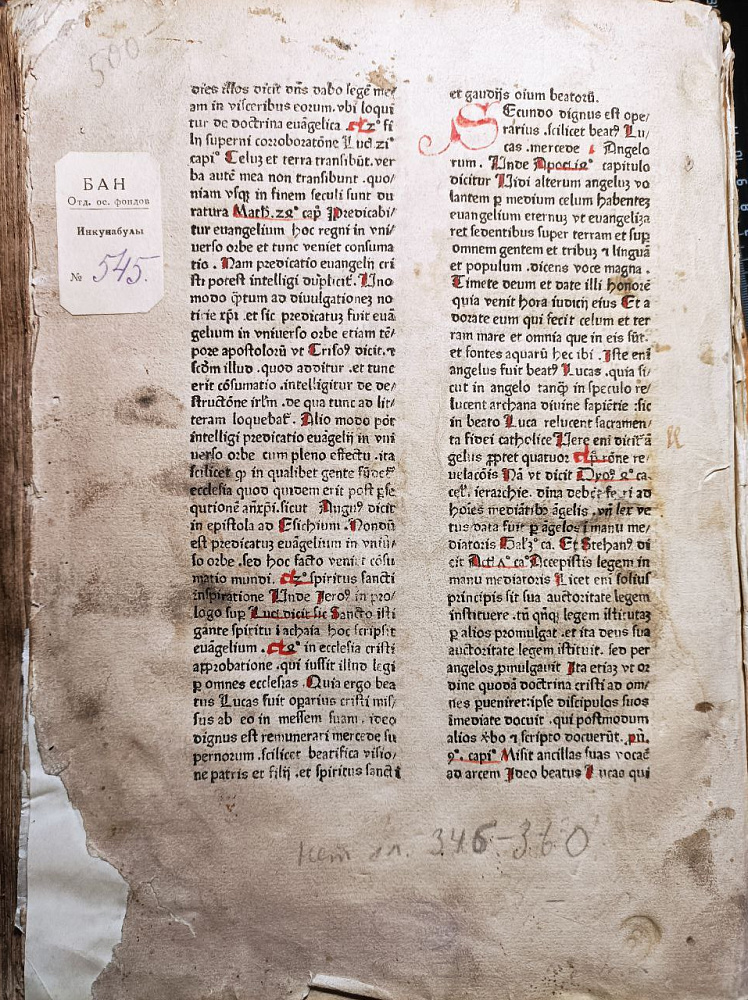 500
БАН
Отд. ос. фондов
Инкунабулы
№ 545.
dies illos dicit dñs dabo legē me/
am in visceribus eorum. vbi loqui
tur de doctrina euāgelica
In superni corroboratōne
capi° Celuȝ et terra transibūt. ver
ba autē mea non transibunt. quo/
niam vsqȝ in finem seculi sunt du
ratura Math. capº Predicabi/
tur euangelium hoc regni in vni/
uerso orbe et tunc veniet consuma
tio. Nam predicatio euangelij cri
sti potest intelligi dupliciť. Uno
modo q̄tum ad diuulgationeȝ no
titie xp̄i .et sic predicatuȝ fuit euā
gelium in vniuerso orbe etiam tē/
pore apostolorū vt Crisoꝰ dicit. ⁊
scd̄m illud .quod additur .et tunc
erit cōsumatio .intelligitur de de/
structōne irl̄m .de qua tunc ad lit/
teram loquebať. Alio modo pōt
intelligi predicatio euāgelij in vni
uerso orbe cum pleno effectu .ita
scilicet ꝙ in qualibet gente
ecclesia quod quidem erit post ꝑse
qutionē anxp̄i .sicut Auguꝰ dicit
in epistola ad Esichium .Nondū
est predicatuȝ euāgelium in vniū/
so orbe .sed hoc facto veniet cōsu
matio mundi. spiritus sancti
inspiratione Unde Jeroꝰ in pro/
logo sup Luc̄ dicit sic Sancto isti
gante spiritu ī achaia hoc scripsit
euāgelium . in ecclesia cristi
approbatione .qui iussit illud legi
ꝑ omnes ecclesias .Quia ergo bea
tus Lucas fuit oꝑarius cristi mis/
sus ab eo in messem suam. ideo
dignus est remunerari mercede su
pernorum .scilicet beatifica visio/
ne patris et filij .et spiritus sancti
et gaudijs oīum beatorū.
SEcundo dignus est ope/
rarius .scilicet beatꝰ Lu/
cas .mercede Angelo
rum . Unde Apoc. capitulo
dicitur Uidi alterum angeluȝ vo
lantem ꝑ medium celum habenteȝ
euangelium eternuȝ vt euangeliȝa
ret sedentibus super terram et sup
omnem gentem et tribuȝ ⁊ linguā
et populum .dicens voce magna .
Timete deum et date illi honorē
quia venit hora iudicij eius Et a
dorate eum qui fecit celum et ter
ram mare et omnia que in eis sūt.
et fontes aquarū hec ibi .Iste enī
angelus fuit beatꝰ Lucas .quia si/
cut in angelo tanq̄ in speculo re/
lucent archana diuine sapiētie :sic
in beato Luca relucent sacramen/
ta fidei catholice Uere eni dicit ā
gelus ꝓpter quatuor rōne re/
uelacōis Nā vt dicit Dyoꝰ ca.
cel̄. ierarchie. dīna ad
hoīes mediātibꝰ āgelis .vñ lex ve
tus data fuit ꝑ āgelos ī manu me/
diatoris Gal̄ ca. Et Stephanꝰ di
cit Act̄ ca° Accepistis legem in
manu mediatoris Licet enī solius
principis sit sua auctoritate legem
instituere .tn̄ qn̄qȝ legem īstitutaȝ
ꝑ alios promulgat .et ita deus sua
auctoritate legem īstituit. sed per
angelos ꝓmulgauit Ita etiaȝ vt or
dine quodā doctrina cristi ad om/
nes ꝑueniret:ipse discipulos suos
īmediate docuit .qui postmodum
alios ỽbo ⁊ scripto docuerūt.
capi° Misit ancillas suas vocaē
ad arcem Ideo beatus Lucas qui
нет лл. 346-360